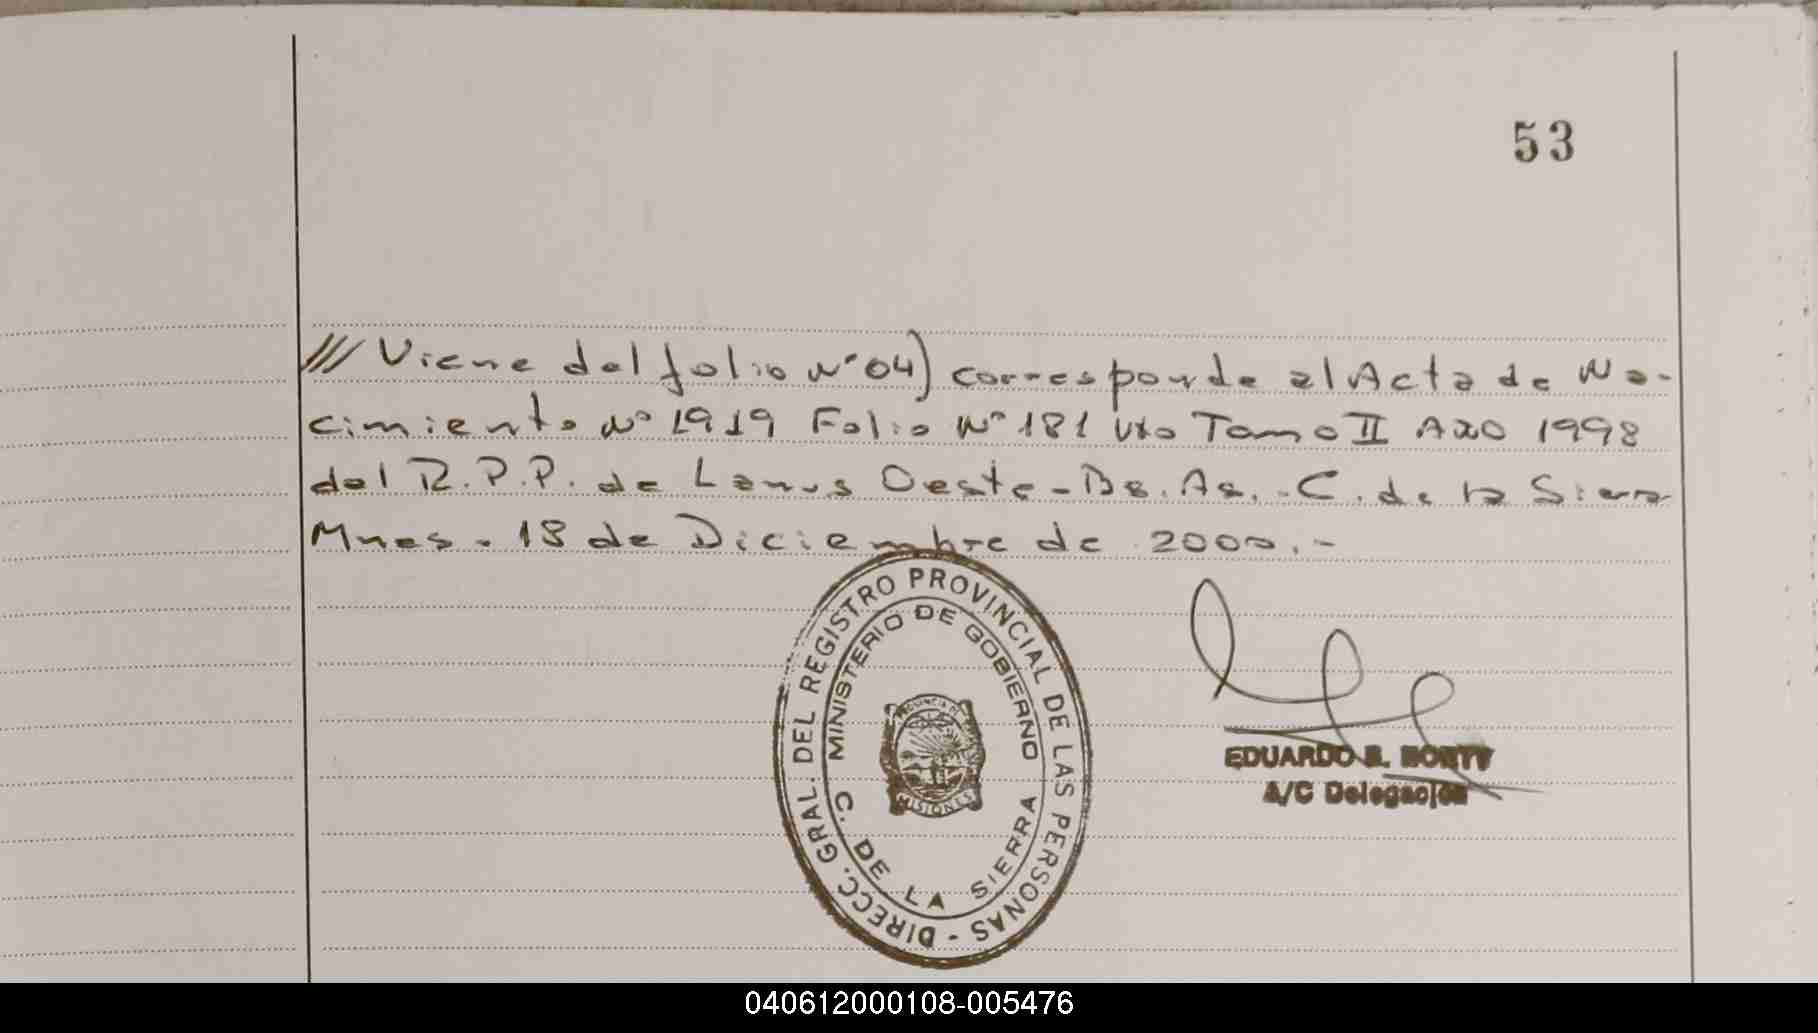 53
/// Viene del folio Nº 04) corresponde al Acta de Na-
cimiento Nº 1919 Folio Nº 181 Vto Tomo II Año 1998
del R.P.P. de Lanus Oeste - Bs. As. - C. de la Sierra
Mnes - 18 de Diciembre de 2000.-
DIRECC. GRAL. DEL REGISTRO PROVINCIAL DE LAS PERSONAS -
MINISTERIO DE GOBIERNO
C. DE LA SIERRA
PROVINCIA DE
MISIONES
EDUARDO
A/C Delegación
040612000108-005476